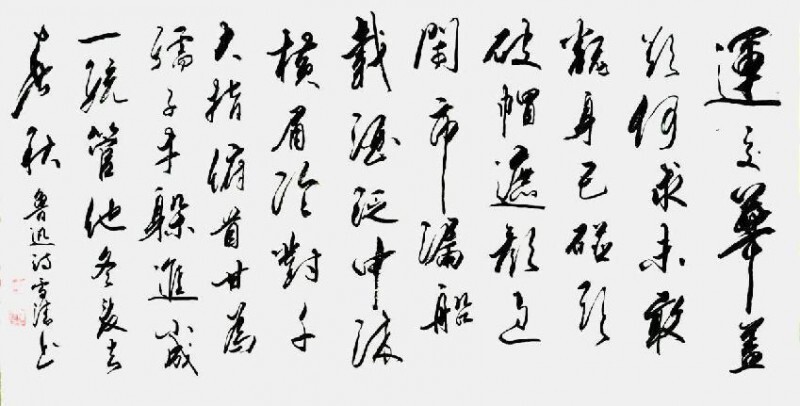 運交華蓋
欲何求未敢
翻身已碰頭
破帽遮顏過
鬧市漏船
載酒泛中流
橫眉冷對千
夫指俯首甘為
孺子牛躲進小成
一統管他冬夏與
春秋
魯迅詩雪書